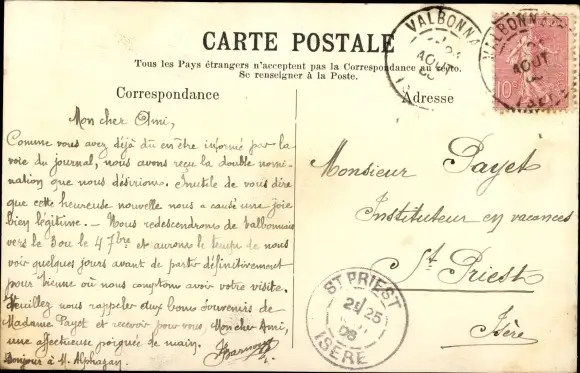 CARTE POSTALE
Tous les Pays étrangers n'acceptent pas la Correspondance au recto.
Se renseigner à la Poste.
Correspondance
Adresse
Mon cher Ami,
Comme vous avez déjà dû en être informé par la
voie du journal, nous avons reçu la double nomi-
nation que nous désirions. Inutile de vous dire
que cette heureuse nouvelle nous a causé une joie
bien légitime. — Nous redescendrons de Valbonnais
vers le 3 ou le 4 7bre et aurons le temps de nous
voir quelques jours avant de partir définitivement
pour Vienne où nous comptons avoir votre visite.
Veuillez nous rappeler aux bons souvenirs de
Madame Payet et recevoir pour vous, Mon cher Ami,
une affectueuse poignée de main.
Bonjour à M.
Monsieur Payet
Instituteur en vacances
St Priest
Isère
VALBONNA
AOUT
VALBONNA
AOUT
ISÈRE
10c
ST PRIEST
21/25
08
ISÈRE